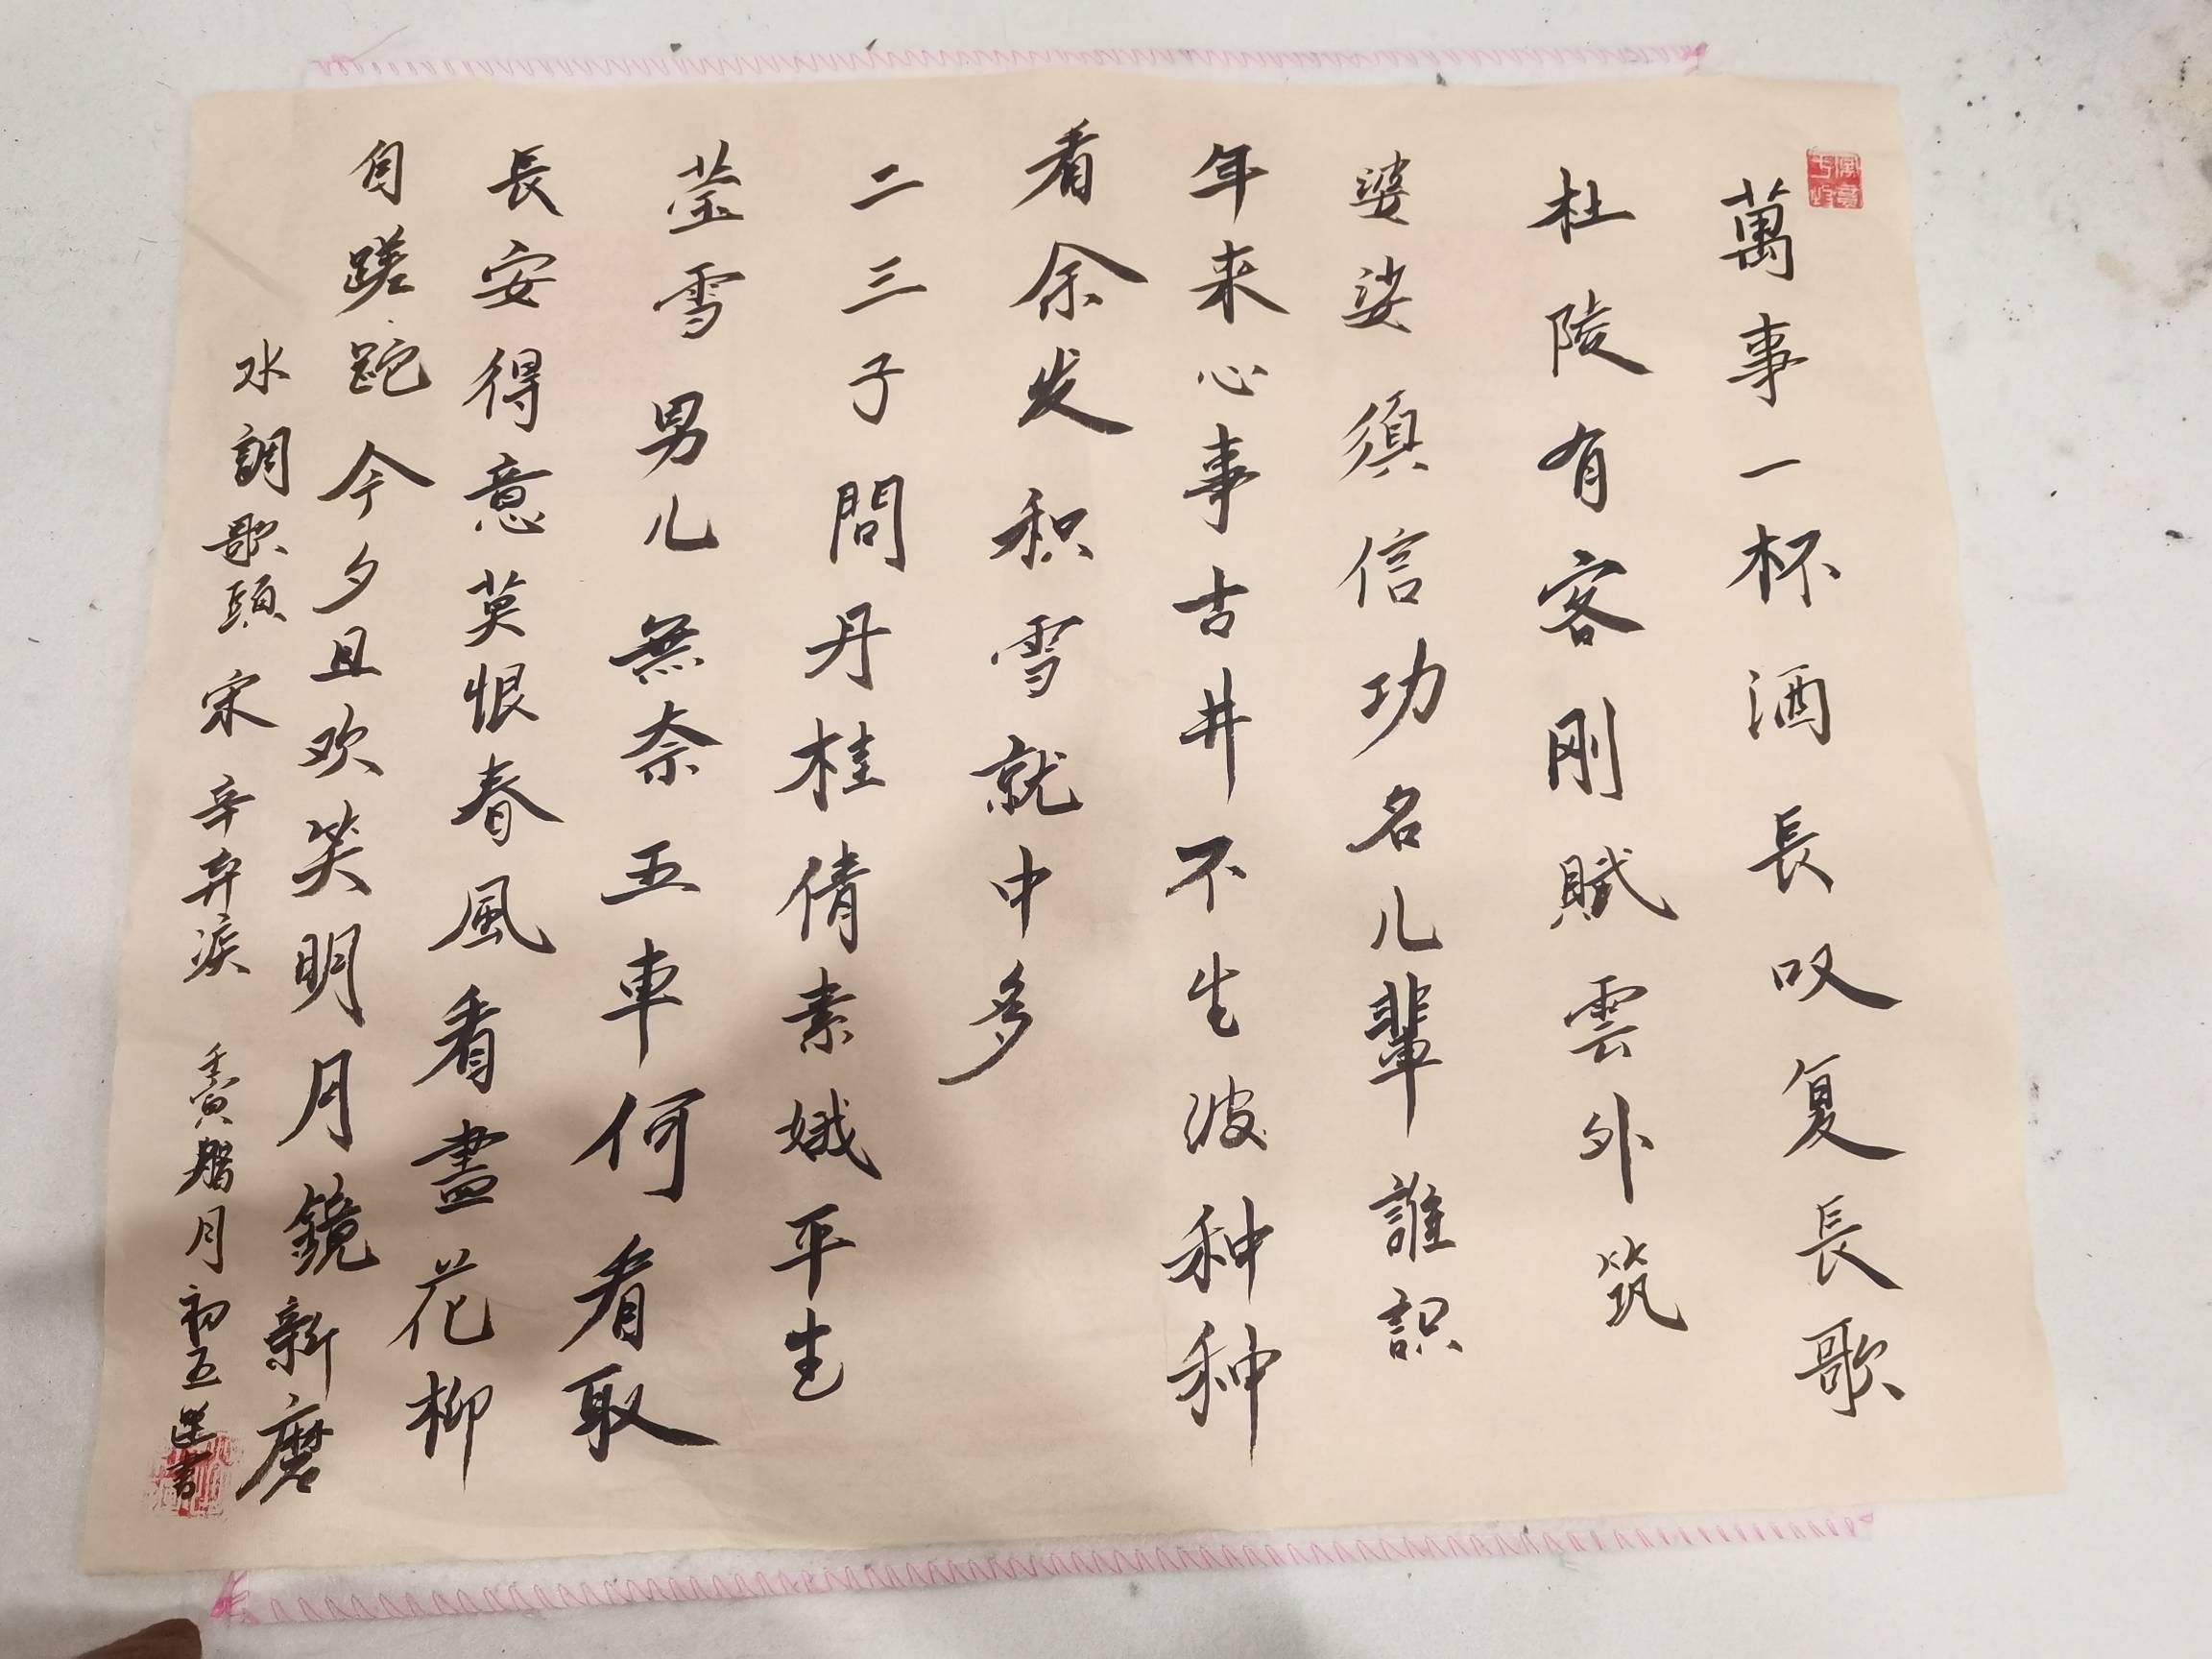 萬事一杯酒長叹复長歌
杜陵有客刚賦雲外筑
婆娑須信功名儿輩誰识
年来心事古井不生波种种
看余发积雪就中多
二三子問丹桂倩素娥平生
莹雪男儿無奈五車何看取
長安得意莫恨春風看盡花柳
自蹉跎今夕且欢笑明月鏡新磨
水調歌頭 宋 辛弃疾 壬寅腊月初五 書